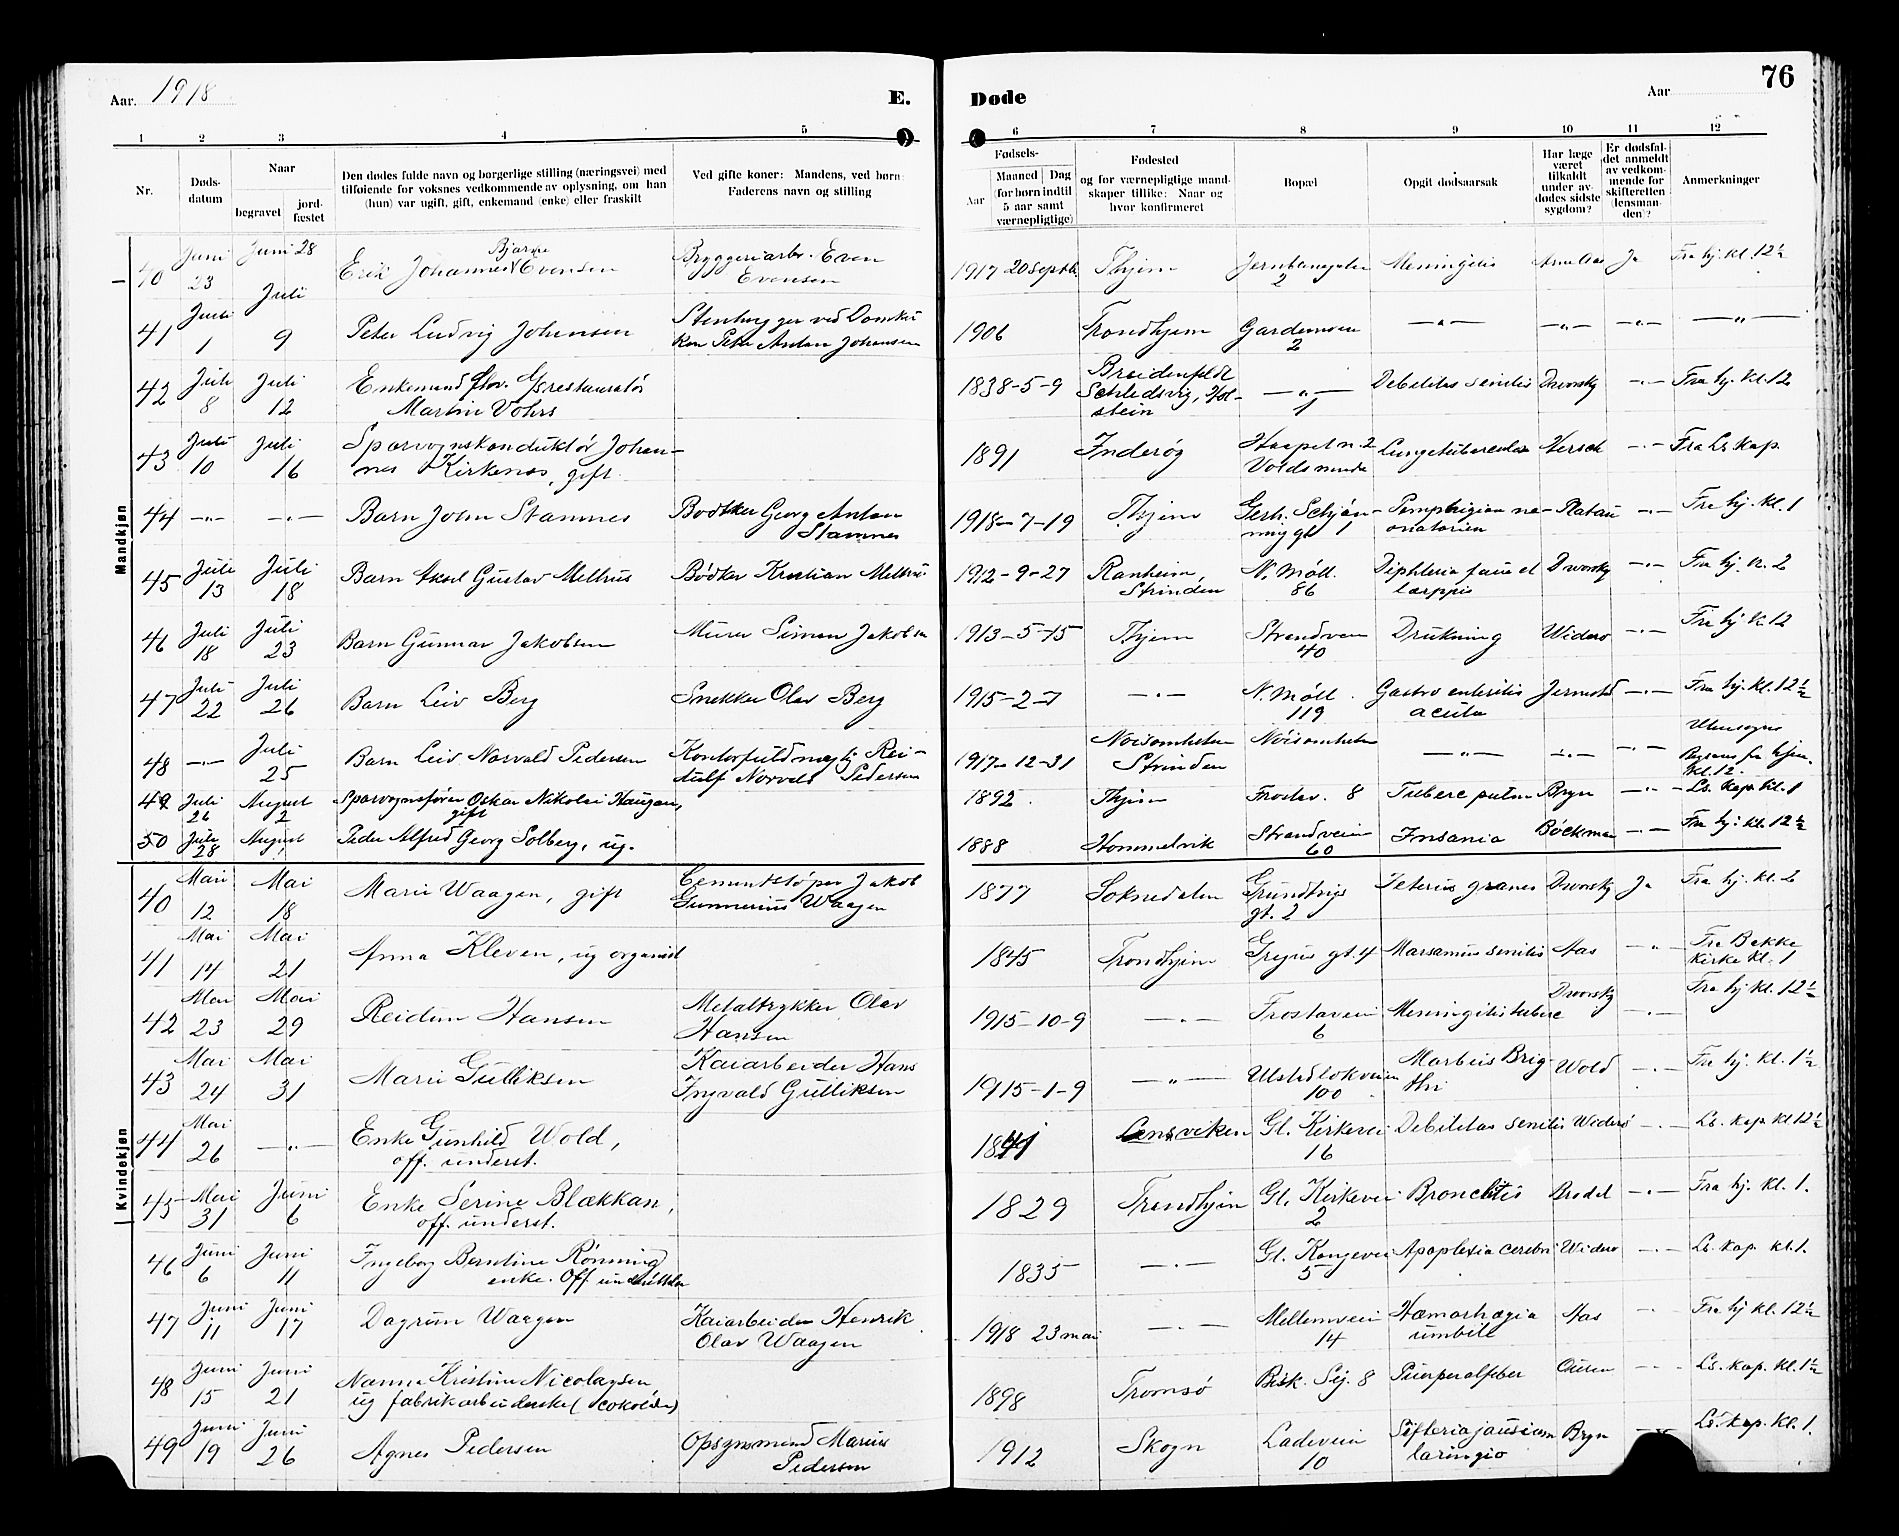 Aar. 1918
E.
Døde
Aar
76
1 2 3 4 5 6 7 8 9 10 11 12
Nr.
Døds-
datum
Naar
begravet
jord-
fæstet
Den dødes fulde navn og borgerlige stilling (næringsvei) med
tilføiende for voksnes vedkommende av oplysning, om han
(hun) var ugift, gift, enkemand (enke) eller fraskilt
Ved gifte koner: Mandens, ved børn:
Faderens navn og stilling
Fødsels-
Aar
Maaned Dag
(for børn indtil
5 aar samt
værnepligtige)
Fødested
og for værnepligtige mand-
skaper tillike: Naar og
hvor konfirmeret
Bopæl
Opgit dødsaarsak
Har læge
været
tilkaldt
under av-
dødes sidste
sygdom?
Er dødsfal-
det anmeldt
av vedkom-
mende for
skifteretten
(lensman-
den)?
Anmerkninger
Mandkjøn
40 Juni 23 Juni 28 Erik Johannes Bjarne Evensen Bryggeriarb. Even Evensen 1917 20 Septb. Thjem Jernbanegaten 2 Meningitis Ja Fra hj. kl. 12½
41 Juli 1 Juli 9 Peter Ludvig Johansen Stenhugger ved Domkir ken Peter Anton Johansen 1906 Trondhjem Gardemoen 2 —„— —„— —„— —„—
42 Juli 8 Juli 12 Enkemand forv. restauratør Martin Vohrs 1838-5-9 Breidenfeldt Schledsvig, Hol- stein —„— 1 Debilitas senilis Dvorsky —„— Fra hj. kl. 12
43 Juli 10 Juli 16 Sporvognskonduktör Johan- nes Kirkenes, gift 1891 Inderøy Haapet n. 2 Voldsminde Lungetuberculose Hersch —„— Fra Ls. kap.
44 —„— —„— Barn John Stamnes Bødker Georg Anton Stamnes 1918-7-19 Thjem Gerh. Schjøn- ning gt 1 Pemphigion ne- onatorien Platau —„— Fra hj. kl. 1
45 Juli 13 Juli 18 Barn Aksel Gustav Melhus Bødker Kristian Melhus 1912-9-27 Ranheim, Strinden N. Møll. 86 Diphteria fauc et larppis Dvorsky —„— Fra hj. 2
46 Juli 18 Juli 23 Barn Gunnar Jakobsen Murer Simon Jakobsen 1913-5-15 Thjem Strandvein 40 Drukning Widerø —„— Fra hj. k. 12
47 Juli 22 Juli 26 Barn Leiv Berg Snekker Olav Berg 1915-2-7 —„— N. Møll. 119 Gastro enteritis acuta Jermstad —„— Fra hj. kl. 12½
48 —„— Juli 25 Barn Leiv Norvald Pedersen Kontorfuldmegtig Rei- dulf Norvald Pedersen 1917-12-31 Nøisomheten Strinden Nøisomheten —„— —„— —„— Utensogns Begraves fra hjem. kl. 12.
49 Juli 26 August 2 Sporvognsfører Oskar Nikolai Haugan, gift 1892 Thjem Frostav. 8 Tuberc pulm Bryn —„— Ls. kap. kl. 1
50 Juli 28 August 1 Peder Alfred Georg Solberg, ug. 1888 Hommelvik Strandveien 60 Insania Bøckman —„— Fra hj. kl. 12½
Kvindekjøn
40 Mai 12 Mai 18 Marie Waagen, gift Cementstøper Jakob Gunnerius Waagen 1877 Soknedalen Grundtvigs gt. 2 Icterus graves Dvorsky Ja Fra hj. kl. 2
41 Mai 14 Mai 21 Anna Kleven, ug organist 1845 Trondhjem Gregus gt. 4 Marsamus senilis Aas —„— Fra Bakke Kirke Kl. 1
42 Mai 23 Mai 29 Reidun Hansen Metaltrykker Olav Hansen 1915-10-9 —„— Frostavein 6 Meningitis tuberc Dvorsky —„— Fra hj kl. 12½
43 Mai 24 Mai 31 Marie Gulliksen Kaiarbeider Hans Ingvald Gulliksen 1915-1-9 —„— Ulstadløkveien 100 Morbus Brig- thi Wold —„— Fra hj. kl. 1½
44 Mai 26 —„— Enke Gunhild Wold, off. underst. 1841 Lensviken Gl. Kirkevei 16 Debilitas senilis Widerø —„— Ls. kap kl 12½
45 Mai 31 Juni 6 Enke Serine Blækkan, off. underst. 1829 Trondhjem Gl. Kirkevei 2 Bronchitis Brodal —„— Fra hj. kl. 1.
46 Juni 6 Juni 11 Ingeborg Berntine Rønning enke. Off understøttelse 1835 —„— Gl. Kongevei 5 Apoplexia cerebri Widerø —„— Ls. kap. kl. 1.
47 Juni 11 Juni 17 Dagrun Waagen Kaiarbeider Henrik Olav Waagen 1918 23 mai —„— Mellemveien 14 Hæmorhagia umbili Aas —„— Fra hj kl. 12½
48 Juni 15 Juni 21 Nanna Kristine Nicolaysen ug fabrikarbeiderske (cokolade) 1898 Tromsø Bisk. Sig. 8 Puerperalfeber —„— Ls. kap. kl. 1½
49 Juni 19 Juni 26 Agnes Pedersen Opsynsmand Marius Pedersen 1912 Skogn Ladeveien 10 laringio Bryn Ls. kap. Kl. 1.